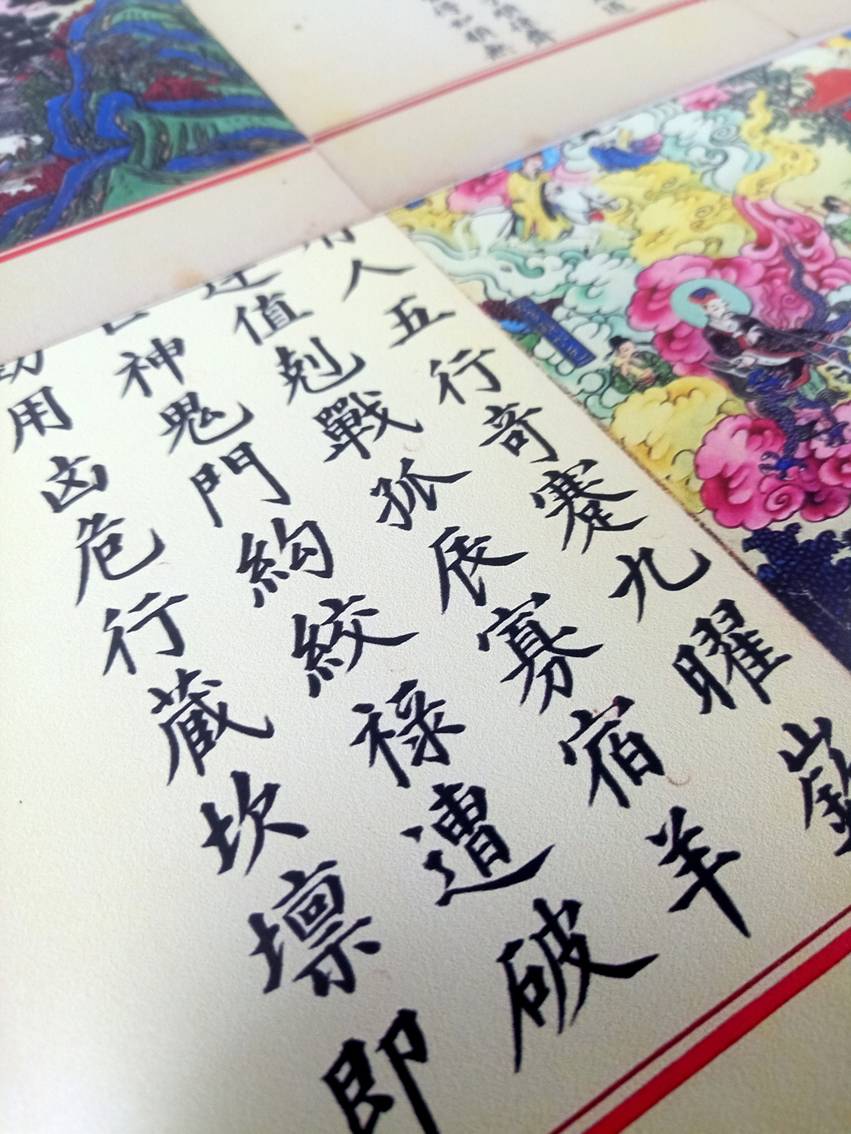 人五行奇蹇九曜嶔
值剋戰孤辰寡宿羊
神鬼門絇絞祿遭破
用凶危行藏坎壈即